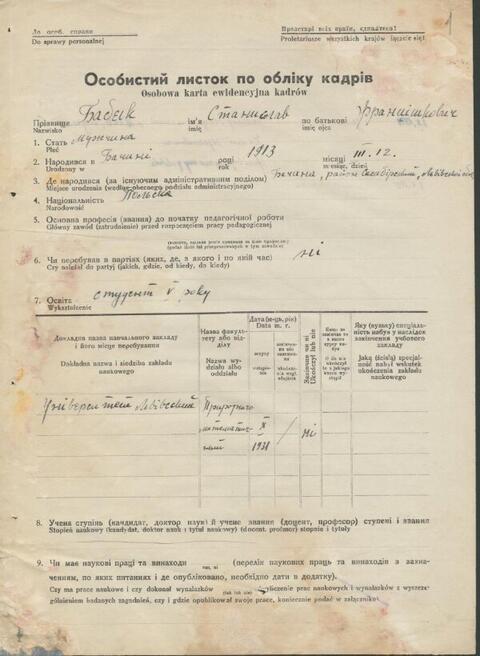 До особ. справи
Do sprawy personalnej
Пролетарі всіх країн, єднайтеся!
Proletariusze wszystkich krajów łączcie się!
1
Особистий листок по обліку кадрів
Osobowa karta ewidencyjna kadrów
Прізвище Бабєк ім'я Станислав по батькові Францішкович
Nazwisko imię imię ojca
1. Стать Мужчина
Płeć
2. Народився в Бачині році 1913 місяці III. 12.
Urodzony w rok miesiąc, dzień
3. Де народився (за існуючим адміністративним поділом) Бачина, район Самбірский, Львівської обл.
Miejsce urodzenia (według obecnego podziału administracyjnego)
4. Національність Польска
Narodowość
5. Основна професія (звання) до початку педагогічної роботи
Główny zawód (zatrudnienie) przed rozpoczęciem pracy pedagogicznej
6. Чи перебував в партіях (яких, де, з якого і по який час) ні
Czy należał do partyj (jakich, gdzie, od kiedy, do kiedy)
7. Освіта студент V. року
Wykształcenie
Докладна назва навчального закладу і його місце перебування
Dokładna nazwa i siedziba zakładu naukowego
Назва факультету або відділу
Nazwa wydziału albo oddziału
Дата (м-ць, рік)
Data m. r.
вступу
Закінчив чи ні
Ukończył lub nie
Яку (вузьку) спеціальність набув у наслідок закінчення учбового закладу
Jaką (ścisłą) specjalność nabył wskutek ukończenia zakładu naukowego
Університет Львівський
Природничо математичний
X 1931
/
ні
8. Учена ступінь (кандидат, доктор наук) й учене звання (доцент, професор) ступені і звання
Stopień naukowy (kandydat, doktor nauk i tytuł naukowy) (docent, profesor) stopnie i tytuły
9. Чи має наукові праці та винаходи так, ні (перелік наукових праць та винаходів з зазначенням, по яких питаннях і де опубліковано, необхідно дати в додатку).
Czy ma prace naukowe i czy dokonał wynalazków (tak lub nie) (wyliczenie prac naukowych i wynalazków z wyszczególnieniem badanych zagadnień, czy i gdzie opublikował swoje prace, koniecznie podać w załączniku).